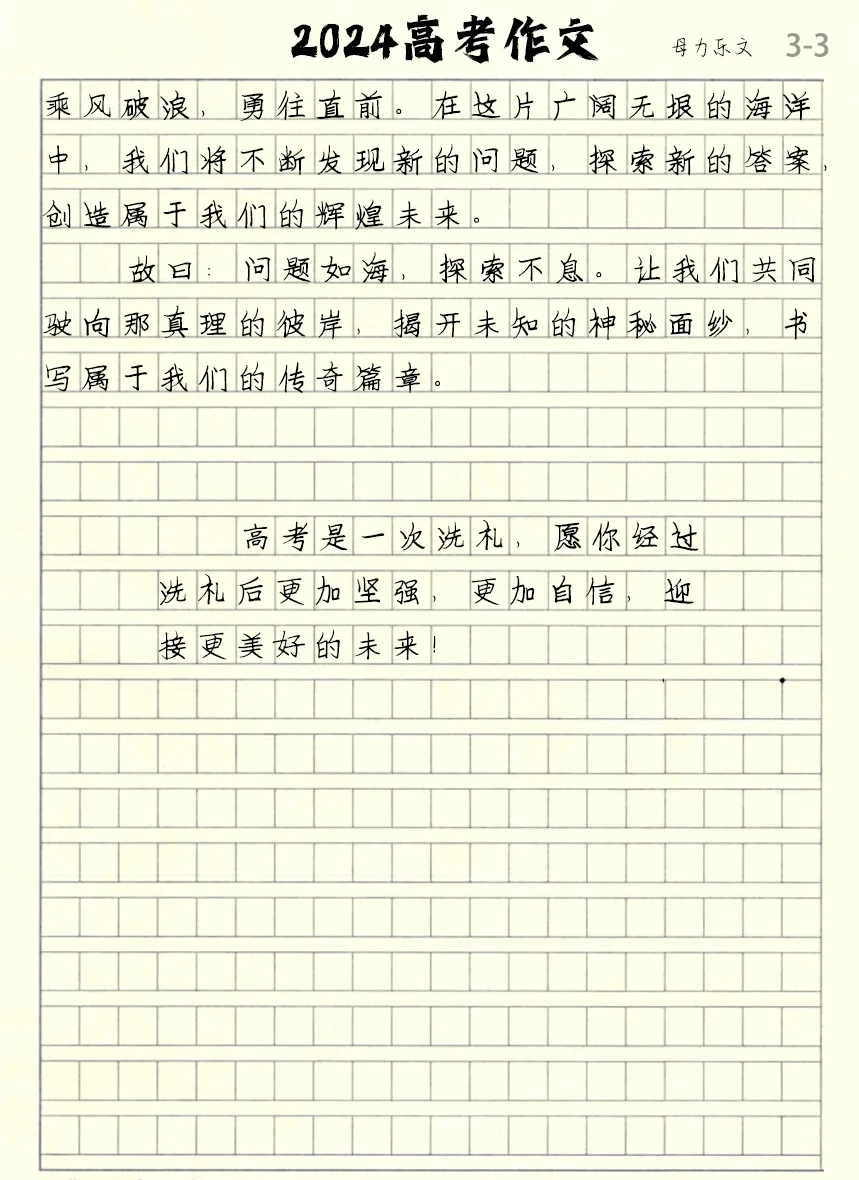 2024高考作文
母力乐文 3-3
乘风破浪，勇往直前。在这片广阔无垠的海洋
中，我们将不断发现新的问题，探索新的答案，
创造属于我们的辉煌未来。
故曰：问题如海，探索不息。让我们共同
驶向那真理的彼岸，揭开未知的神秘面纱，书
写属于我们的传奇篇章。
高考是一次洗礼，愿你经过
洗礼后更加坚强，更加自信，迎
接更美好的未来！